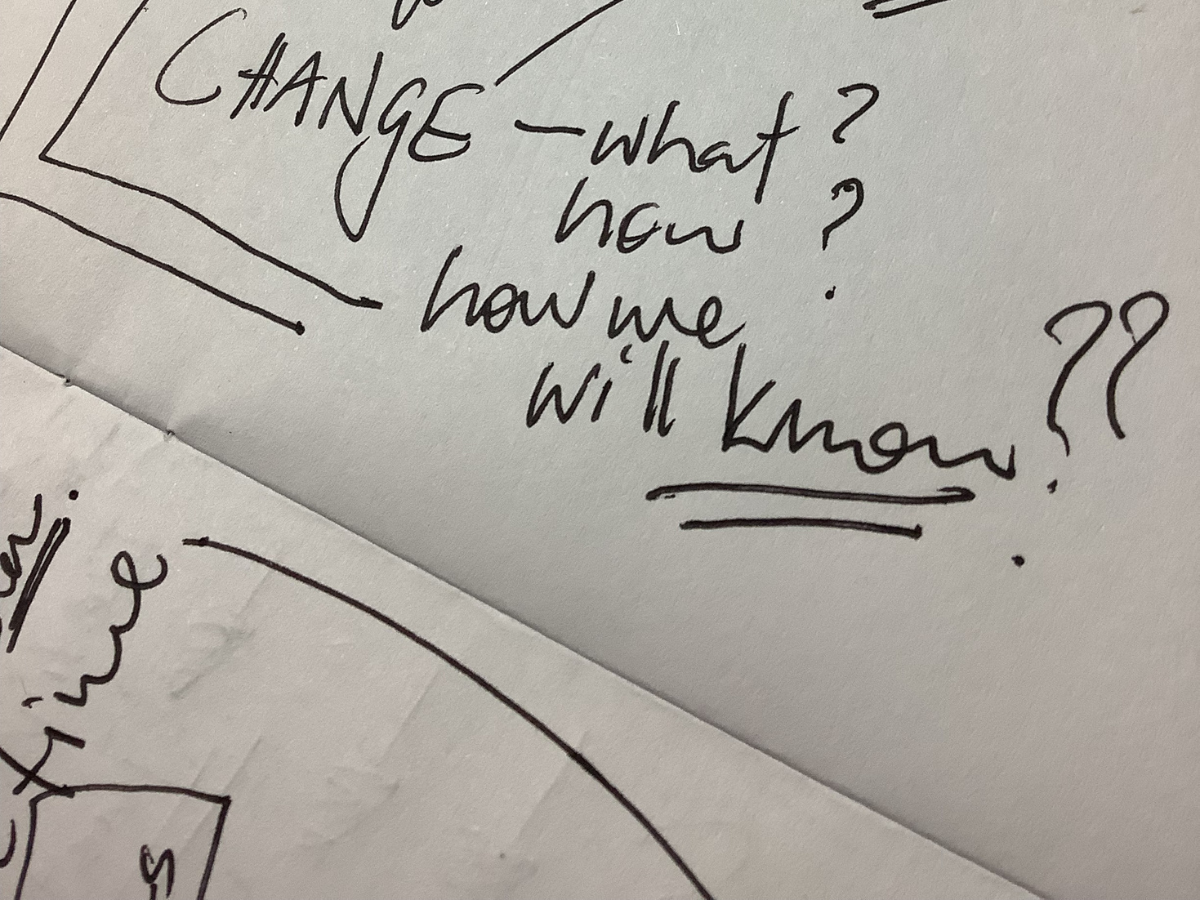 CHANGE - what?
how?
how we
will know??
time
s